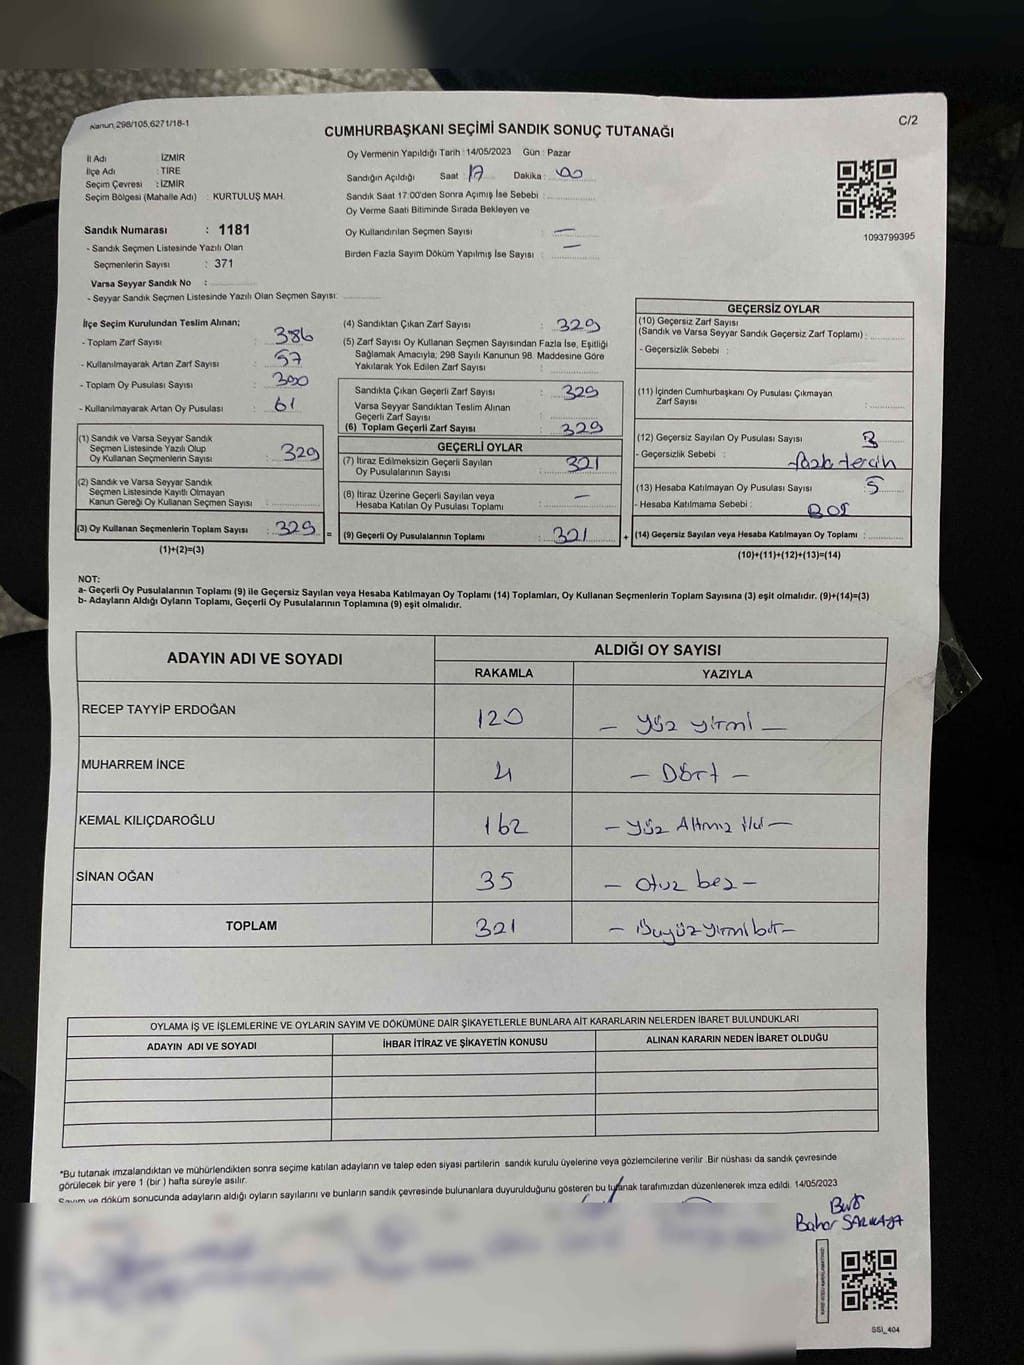 Kanun,298/105,6271/18-1
C/2
CUMHURBAŞKANI SEÇİMİ SANDIK SONUÇ TUTANAĞI
İl Adı : İZMİR
İlçe Adı : TİRE
Seçim Çevresi : İZMİR
Seçim Bölgesi (Mahalle Adı) : KURTULUŞ MAH.
Sandık Numarası : 1181
- Sandık Seçmen Listesinde Yazılı Olan
Seçmenlerin Sayısı : 371
Varsa Seyyar Sandık No :
- Seyyar Sandık Seçmen Listesinde Yazılı Olan Seçmen Sayısı:
Oy Vermenin Yapıldığı Tarih : 14/05/2023 Gün : Pazar
Sandığın Açıldığı Saat : 17 Dakika : 00
Sandık Saat 17:00'den Sonra Açımış İse Sebebi :
Oy Verme Saati Bitiminde Sırada Bekleyen ve
Oy Kullandırılan Seçmen Sayısı : —
Birden Fazla Sayım Döküm Yapılmış İse Sayısı : —
1093799395
İlçe Seçim Kurulundan Teslim Alınan;
- Toplam Zarf Sayısı : 386
- Kullanılmayarak Artan Zarf Sayısı : 57
- Toplam Oy Pusulası Sayısı : 390
- Kullanılmayarak Artan Oy Pusulası : 61
(1) Sandık ve Varsa Seyyar Sandık
Seçmen Listesinde Yazılı Olup
Oy Kullanan Seçmenlerin Sayısı : 329
(2) Sandık ve Varsa Seyyar Sandık
Seçmen Listesinde Kayıtlı Olmayan
Kanun Gereği Oy Kullanan Seçmen Sayısı :
(3) Oy Kullanan Seçmenlerin Toplam Sayısı : 329
(1)+(2)=(3)
=
(4) Sandıktan Çıkan Zarf Sayısı : 329
(5) Zarf Sayısı Oy Kullanan Seçmen Sayısından Fazla İse, Eşitliği
Sağlamak Amacıyla; 298 Sayılı Kanunun 98. Maddesine Göre
Yakılarak Yok Edilen Zarf Sayısı :
Sandıkta Çıkan Geçerli Zarf Sayısı : 329
Varsa Seyyar Sandıktan Teslim Alınan
Geçerli Zarf Sayısı :
(6) Toplam Geçerli Zarf Sayısı : 329
GEÇERLİ OYLAR
(7) İtiraz Edilmeksizin Geçerli Sayılan
Oy Pusulalarının Sayısı : 321
(8) İtiraz Üzerine Geçerli Sayılan veya
Hesaba Katılan Oy Pusulası Toplamı : —
(9) Geçerli Oy Pusulalarının Toplamı : 321
+
GEÇERSİZ OYLAR
(10) Geçersiz Zarf Sayısı
(Sandık ve Varsa Seyyar Sandık Geçersiz Zarf Toplamı) :
- Geçersizlik Sebebi :
(11) İçinden Cumhurbaşkanı Oy Pusulası Çıkmayan
Zarf Sayısı :
(12) Geçersiz Sayılan Oy Pusulası Sayısı : 3
- Geçersizlik Sebebi : fazla tercih
(13) Hesaba Katılmayan Oy Pusulası Sayısı : 5
- Hesaba Katılmama Sebebi : BOŞ
(14) Geçersiz Sayılan veya Hesaba Katılmayan Oy Toplamı :
(10)+(11)+(12)+(13)=(14)
NOT:
a- Geçerli Oy Pusulalarının Toplamı (9) ile Geçersiz Sayılan veya Hesaba Katılmayan Oy Toplamı (14) Toplamları, Oy Kullanan Seçmenlerin Toplam Sayısına (3) eşit olmalıdır. (9)+(14)=(3)
b- Adayların Aldığı Oyların Toplamı, Geçerli Oy Pusulalarının Toplamına (9) eşit olmalıdır.
ADAYIN ADI VE SOYADI
ALDIĞI OY SAYISI
RAKAMLA YAZIYLA
RECEP TAYYİP ERDOĞAN 120 — Yüz yirmi —
MUHARREM İNCE 4 — Dört —
KEMAL KILIÇDAROĞLU 162 — Yüz Altmış iki —
SİNAN OĞAN 35 — Otuz beş —
TOPLAM 321 — Üçyüz yirmi bir —
OYLAMA İŞ VE İŞLEMLERİNE VE OYLARIN SAYIM VE DÖKÜMÜNE DAİR ŞİKAYETLERLE BUNLARA AİT KARARLARIN NELERDEN İBARET BULUNDUKLARI
ADAYIN ADI VE SOYADI İHBAR İTİRAZ VE ŞİKAYETİN KONUSU ALINAN KARARIN NEDEN İBARET OLDUĞU
*Bu tutanak imzalandıktan ve mühürlendikten sonra seçime katılan adayların ve talep eden siyasi partilerin sandık kurulu üyelerine veya gözlemcilerine verilir. Bir nüshası da sandık çevresinde
görülecek bir yere 1 (bir ) hafta süreyle asılır.
Sayım ve döküm sonucunda adayların aldığı oyların sayılarını ve bunların sandık çevresinde bulunanlara duyurulduğunu gösteren bu tutanak tarafımızdan düzenlenerek imza edildi. 14/05/2023
Bahar SARIKAYA
SSİ_404